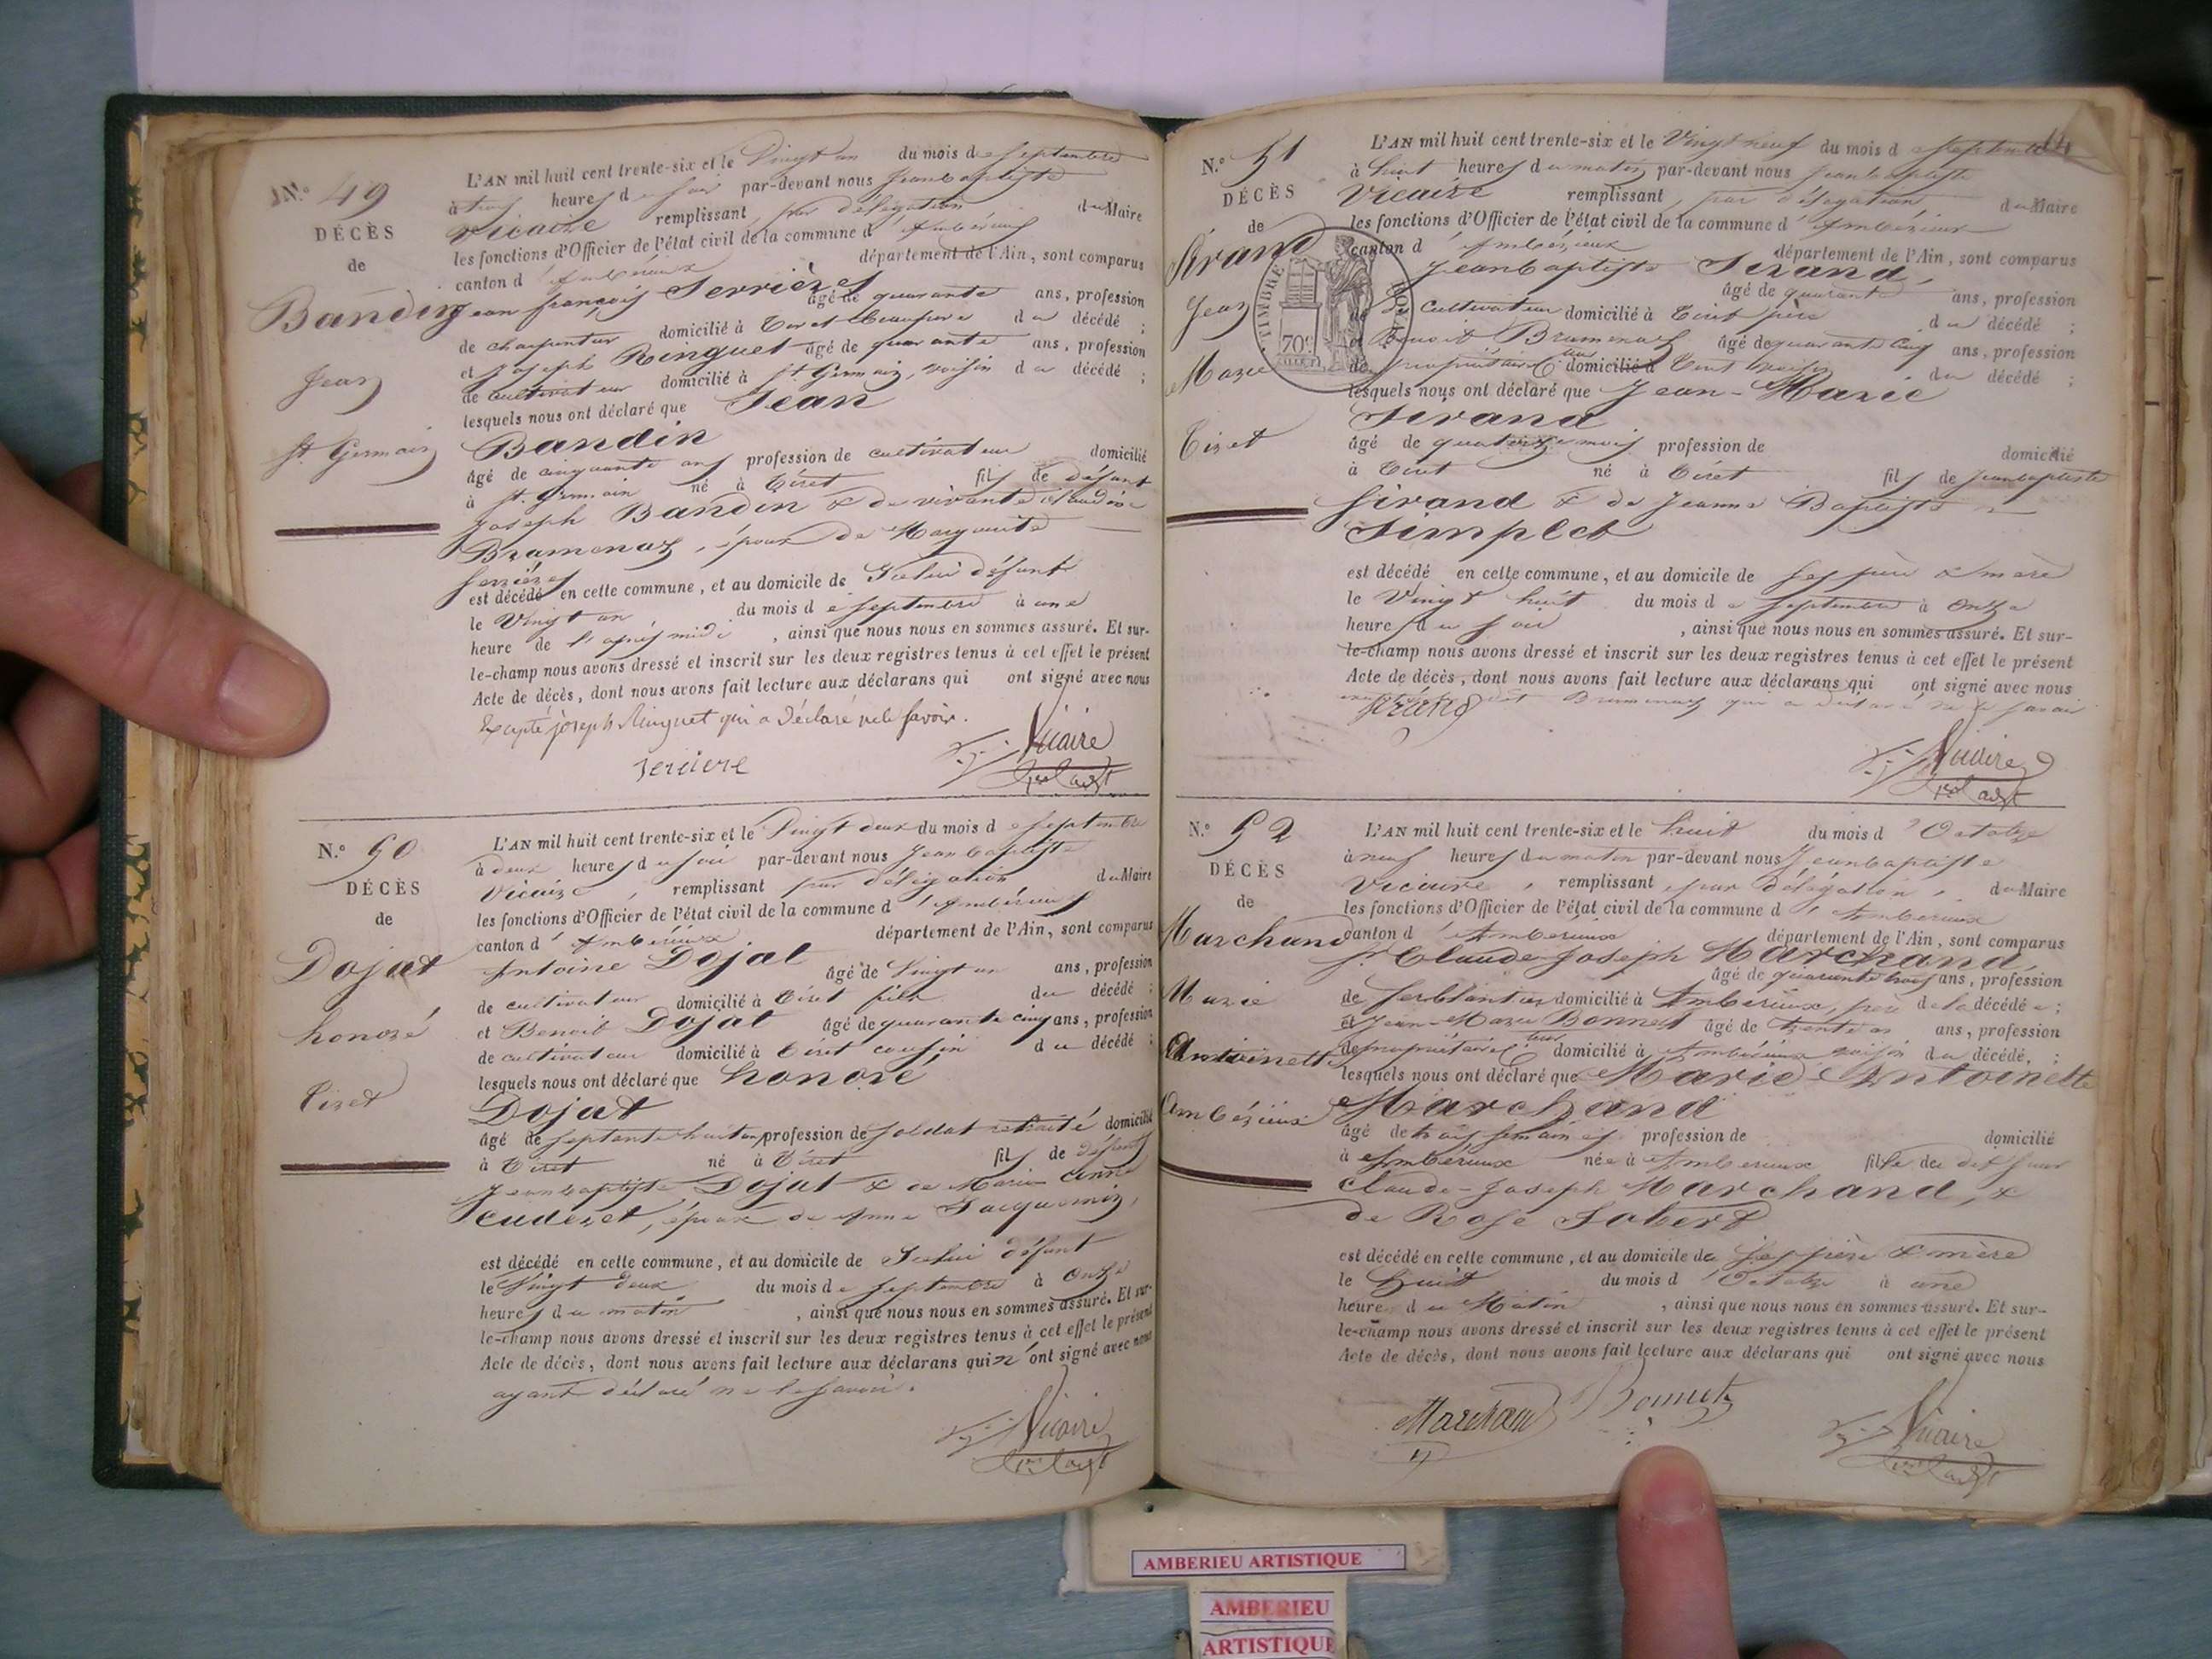 N.° 49
DÉCÈS
de
Bandin
Jean
St. Germain
L'AN mil huit cent trente-six et le Vingt un du mois de Septembre
à trois heures du soir par-devant nous Jeanbaptiste
Vicaire remplissant par délégation du Maire
les fonctions d'Officier de l'état civil de la commune d'Ambérieux
canton d'Ambérieux département de l'Ain, sont comparus
Jean françois Serrières âgé de quarante ans, profession
de charpentier domicilié à Tiret beaufrere du décédé ;
et Joseph Ringuet âgé de quarante ans, profession
de cultivateur domicilié à St. Germain, voisin du décédé ;
lesquels nous ont déclaré que Jean
Bandin
âgé de cinquante ans profession de cultivateur domicilié
à St. Germain né à Tiret fils de défunt
Joseph Bandin & de vivante Claudine
Bramenas, époux de Marguerite
Serrières
est décédé en cette commune, et au domicile de Icelui défunt
le Vingt un du mois de Septembre à une
heure de l'après midi, ainsi que nous nous en sommes assuré. Et sur-
le-champ nous avons dressé et inscrit sur les deux registres tenus à cet effet le présent
Acte de décès, dont nous avons fait lecture aux déclarans qui ont signé avec nous
Excepté joseph Ringuet qui a déclaré ne le savoir.
Vicaire
N.° 50
DÉCÈS
de
Dojat
honoré
Tiret
L'AN mil huit cent trente-six et le Vingt deux du mois de Septembre
à deux heures du soir par-devant nous Jeanbaptiste
Vicaire, remplissant par délégation du Maire
les fonctions d'Officier de l'état civil de la commune d'Ambérieux
canton d'Ambérieux département de l'Ain, sont comparus
Antoine Dojat âgé de Vingt un ans, profession
de cultivateur domicilié à Tiret fils du décédé ;
et Benoit Dojat âgé de quarante cinq ans, profession
de cultivateur domicilié à Tiret cousin du décédé ;
lesquels nous ont déclaré que honoré
Dojat
âgé de septante huit ans profession de Soldat retraité domicilié
à Tiret né à Tiret fils de défunt
Jeanbaptiste Dojat & de Marie Anne
époux de Anne Jacquemin,
est décédé en cette commune, et au domicile de Icelui défunt
le Vingt deux du mois de Septembre à Onze
heures du matin, ainsi que nous nous en sommes assuré. Et sur-
le-champ nous avons dressé et inscrit sur les deux registres tenus à cet effet le présent
Acte de décès, dont nous avons fait lecture aux déclarans qui n'ont signé avec nous
ayant déclaré ne le savoir.
Vicaire
N.° 51
DÉCÈS
de
Sirand
Jean
Marie
Tiret
TIMBRE ROYAL
70c
L'AN mil huit cent trente-six et le Vingt neuf du mois de Septembre
à huit heures du matin par-devant nous Jeanbaptiste
Vicaire remplissant, par délégation du Maire
les fonctions d'Officier de l'état civil de la commune d'Ambérieux
canton d'Ambérieux département de l'Ain, sont comparus
Jeanbaptiste Sirand, âgé de quarante ans, profession
de cultivateur domicilié à Tiret père du décédé ;
et Benoit Bramenas âgé de quarante cinq ans, profession
de propriétaire Cteur domicilié à Tiret voisin du décédé ;
lesquels nous ont déclaré que Jean-Marie
Sirand
âgé de quatorze mois profession de domicilié
à Tiret né à Tiret fils de Jeanbaptiste
Sirand & de Jeanne Baptiste
Simplet
est décédé en cette commune, et au domicile de Ses père & mère
le Vingt huit du mois de Septembre à Onze
heure du soir, ainsi que nous nous en sommes assuré. Et sur-
le-champ nous avons dressé et inscrit sur les deux registres tenus à cet effet le présent
Acte de décès, dont nous avons fait lecture aux déclarans qui ont signé avec nous
Bramenas qui a déclaré ne le savoir
Sirand
Vicaire
N.° 52
DÉCÈS
de
Marchand
Marie
Antoinette
Ambérieux
L'AN mil huit cent trente-six et le huit du mois d'Octobre
à neuf heures du matin par-devant nous Jeanbaptiste
Vicaire, remplissant, par délégation, du Maire
les fonctions d'Officier de l'état civil de la commune d'Ambérieux
canton d'Ambérieux département de l'Ain, sont comparus
Sr Claude-Joseph Marchand, âgé de quarante trois ans, profession
de ferblantier domicilié à Ambérieux, père de la décédée ;
et Jean-Marie Bonnet âgé de trente un ans, profession
de propriétaire Cteur domicilié à Ambérieux voisin du décédé, ;
lesquels nous ont déclaré que Marie-Antoinette
Marchand
âgé de trois semaines profession de domicilié
à Ambérieux née à Ambérieux fille du dit Sieur
Claude-Joseph Marchand, &
de Rose Jobert
est décédé en cette commune, et au domicile de Ses père & mère
le huit du mois d'Octobre à une
heure du Matin, ainsi que nous nous en sommes assuré. Et sur-
le-champ nous avons dressé et inscrit sur les deux registres tenus à cet effet le présent
Acte de décès, dont nous avons fait lecture aux déclarans qui ont signé avec nous
Marchand Bonnet
Vicaire
AMBERIEU ARTISTIQUE
AMBERIEU
ARTISTIQUE